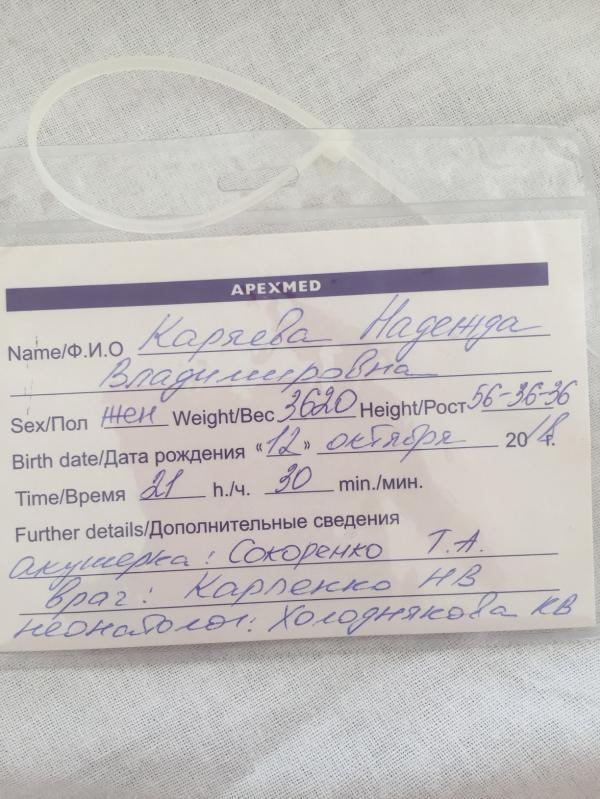 APEXMED
Name/Ф.И.О Каряева Надежда
Владимировна
Sex/Пол жен Weight/Вес 3620 Height/Рост 56-36-36
Birth date/Дата рождения «12» октября 2018г.
Time/Время 21 h./ч. 30 min./мин.
Further details/Дополнительные сведения
акушерка: Сокоренко Т.А.
врач: Карпенко НВ
неонатолог: Холоднякова КВ